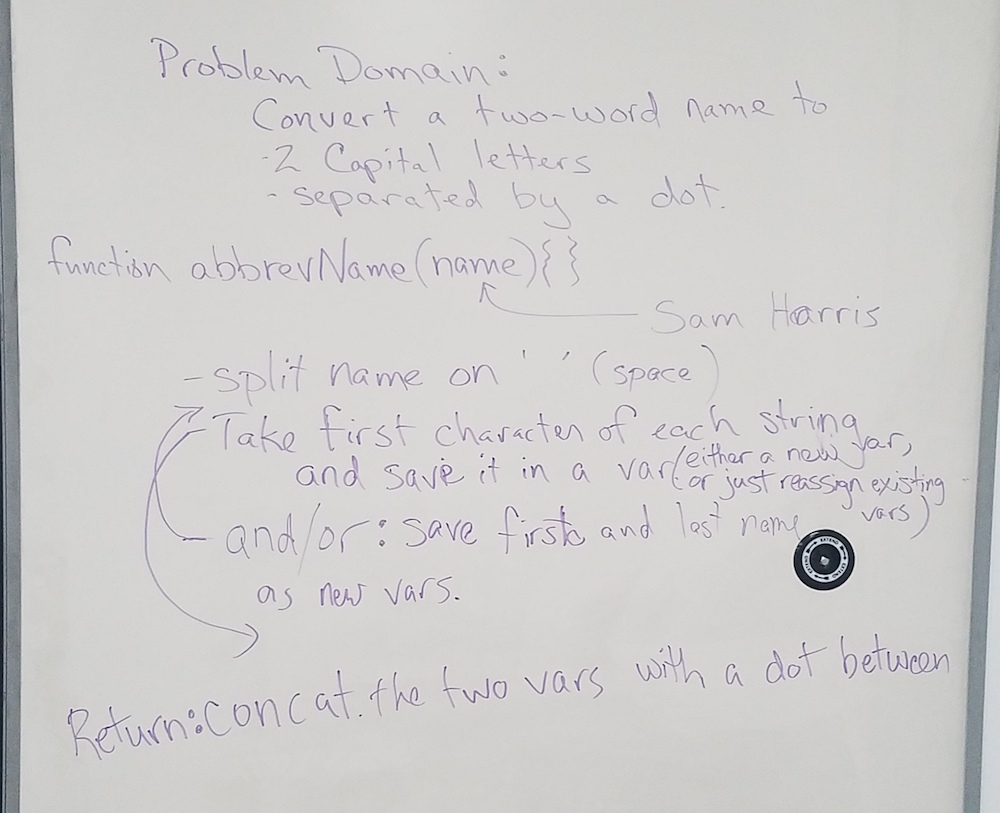 Problem Domain:
Convert a two-word name to
-2 Capital letters
-separated by a dot.
function abbrevName(name){}
Sam Harris
-split name on ' ' (space)
-Take first character of each string
and save it in a var (either a new var,
or just reassign existing
vars)
- and/or: save first and last name
as new vars.
Return: Concat. the two vars with a dot between
EXTEND EXTEND EXTEND